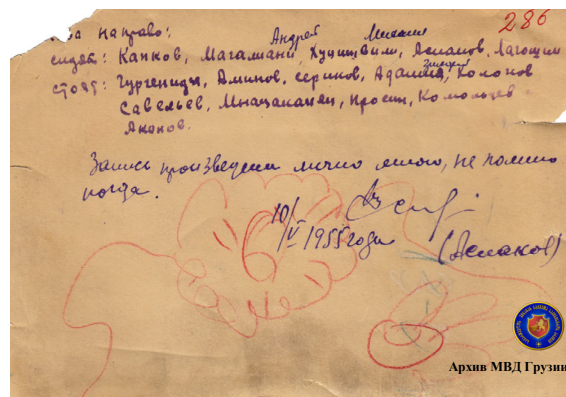 286
направо:
Андрей Михаил
сидят: Капков, Магалашвили, Хуцишвили, Асланов,
стоят: Гургенидзе, Аминов, Сериков, Адамия, Колонов
Савельев, Мнацаканян, Просин, Комольцев
Аконов.
Запись произведена лично мною, не помню
когда.
10/V 1955 года
(Асланов)
Архив МВД Грузии